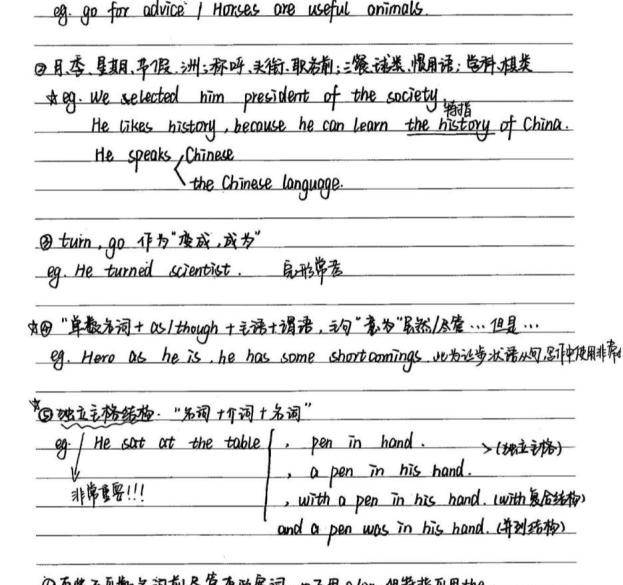 eg. go for advice / Horses are useful animals.
② 月、季、星期、节假、洲;称呼、头衔、职务前;三餐、球类、惯用语;学科、棋类
☆eg. We selected him president of the society.
特指
He likes history, because he can learn the history of China.
He speaks Chinese
the Chinese language.
③ turn, go 作为"变成,成为"
eg. He turned scientist.
☆④ "单数名词 + as/though + 主语+谓语,主句"意为"虽然/尽管…但是…
eg. Hero as he is, he has some shortcomings. 此为让步状语从句,写作中使用非常
☆⑤ 独立主格结构. "名词+介词+名词"
eg. He sat at the table , pen in hand. >(独立主格)
, a pen in his hand.
非常重要!!!
, with a pen in his hand. (with复合结构)
and a pen was in his hand. (并列结构)